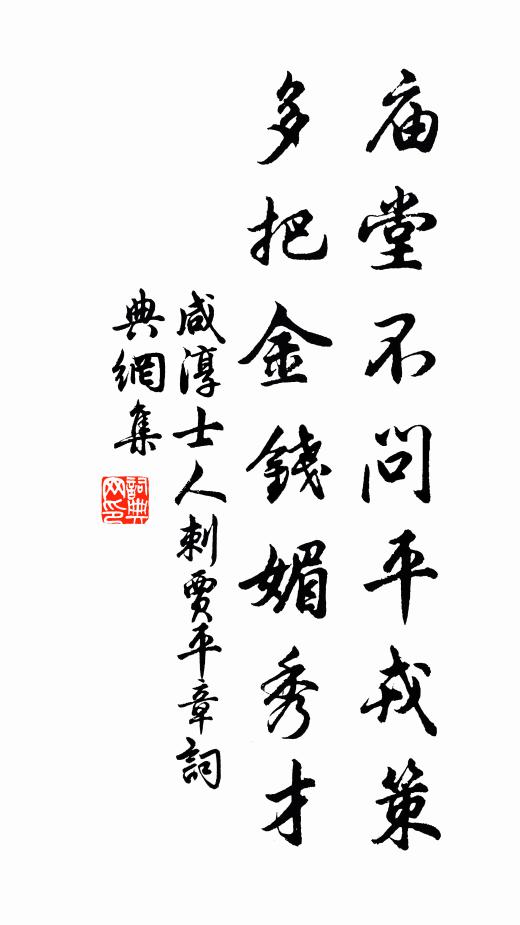 庙堂不问平戎策
多把金錢媚秀才
咸淳士人刺賈平章詞
典網集
詞典网印